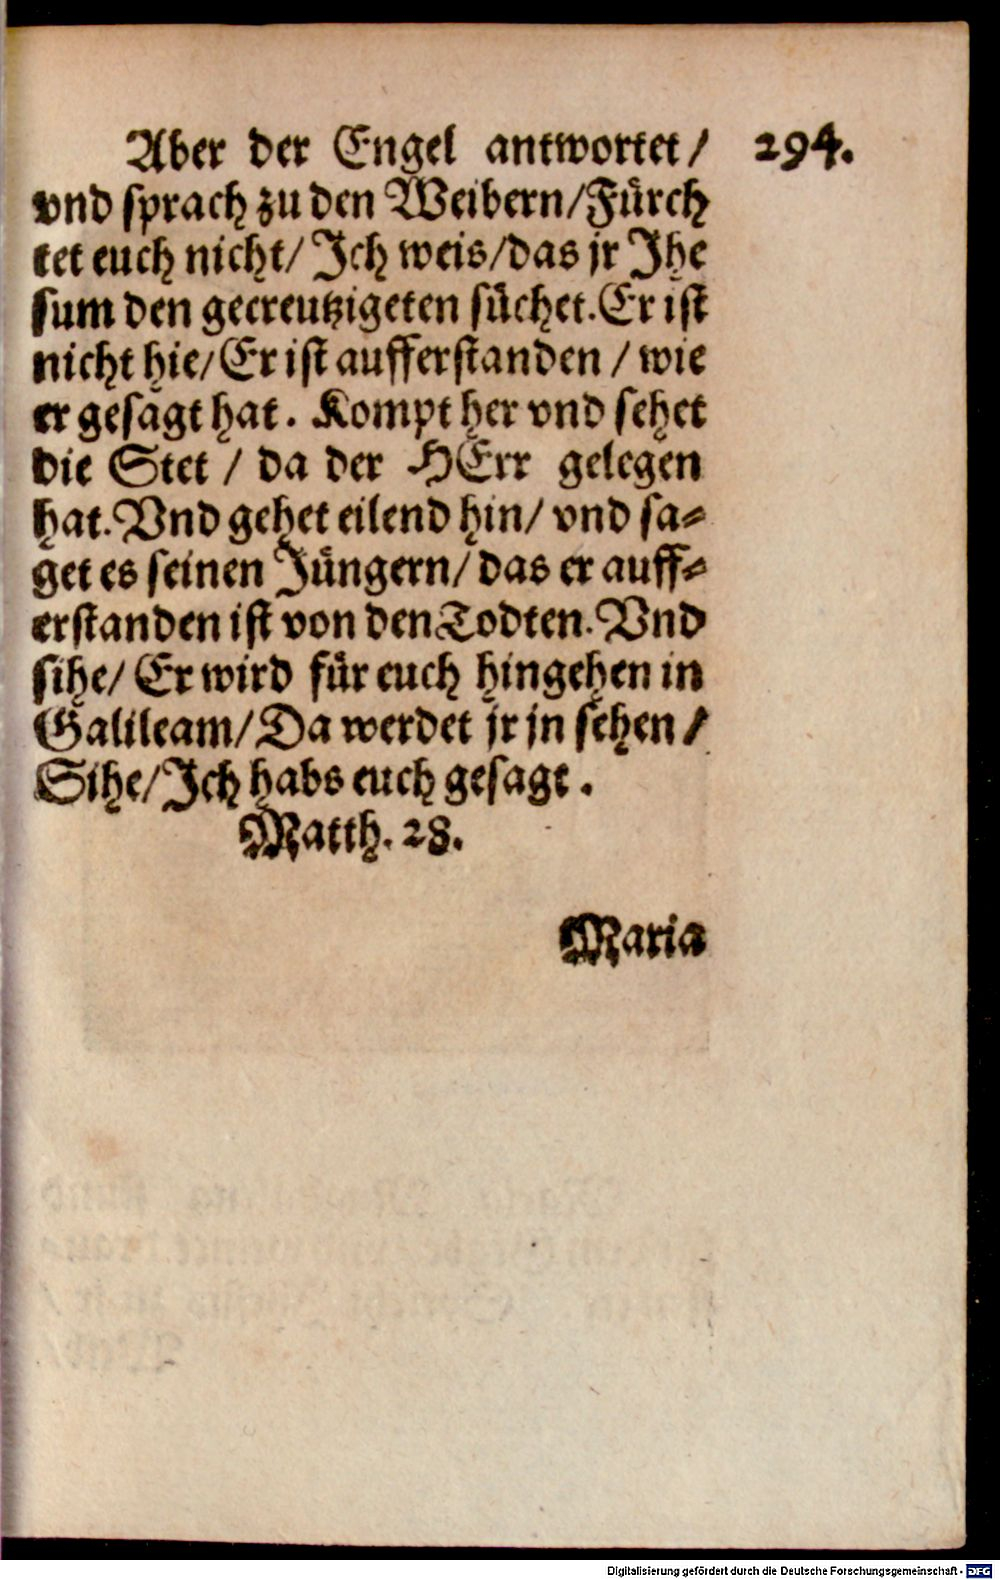 Aber der Engel antwortet/ 294.
vnd sprach zu den Weibern/Fürch
tet euch nicht/ Ich weis/das jr Jhe
sum den gecreutzigeten süchet. Er ist
nicht hie/ Er ist aufferstanden / wie
er gesagt hat. Kompt her vnd sehet
die Stet / da der HErr gelegen
hat. Vnd gehet eilend hin/ vnd sa⸗
get es seinen Jüngern/ das er auff⸗
erstanden ist von den Todten. Vnd
sihe/ Er wird für euch hingehen in
Galileam/ Da werdet jr jn sehen/
Sihe/ Ich habs euch gesagt.
Matth. 28.
Maria
Digitalisierung gefördert durch die Deutsche Forschungsgemeinschaft - DFG